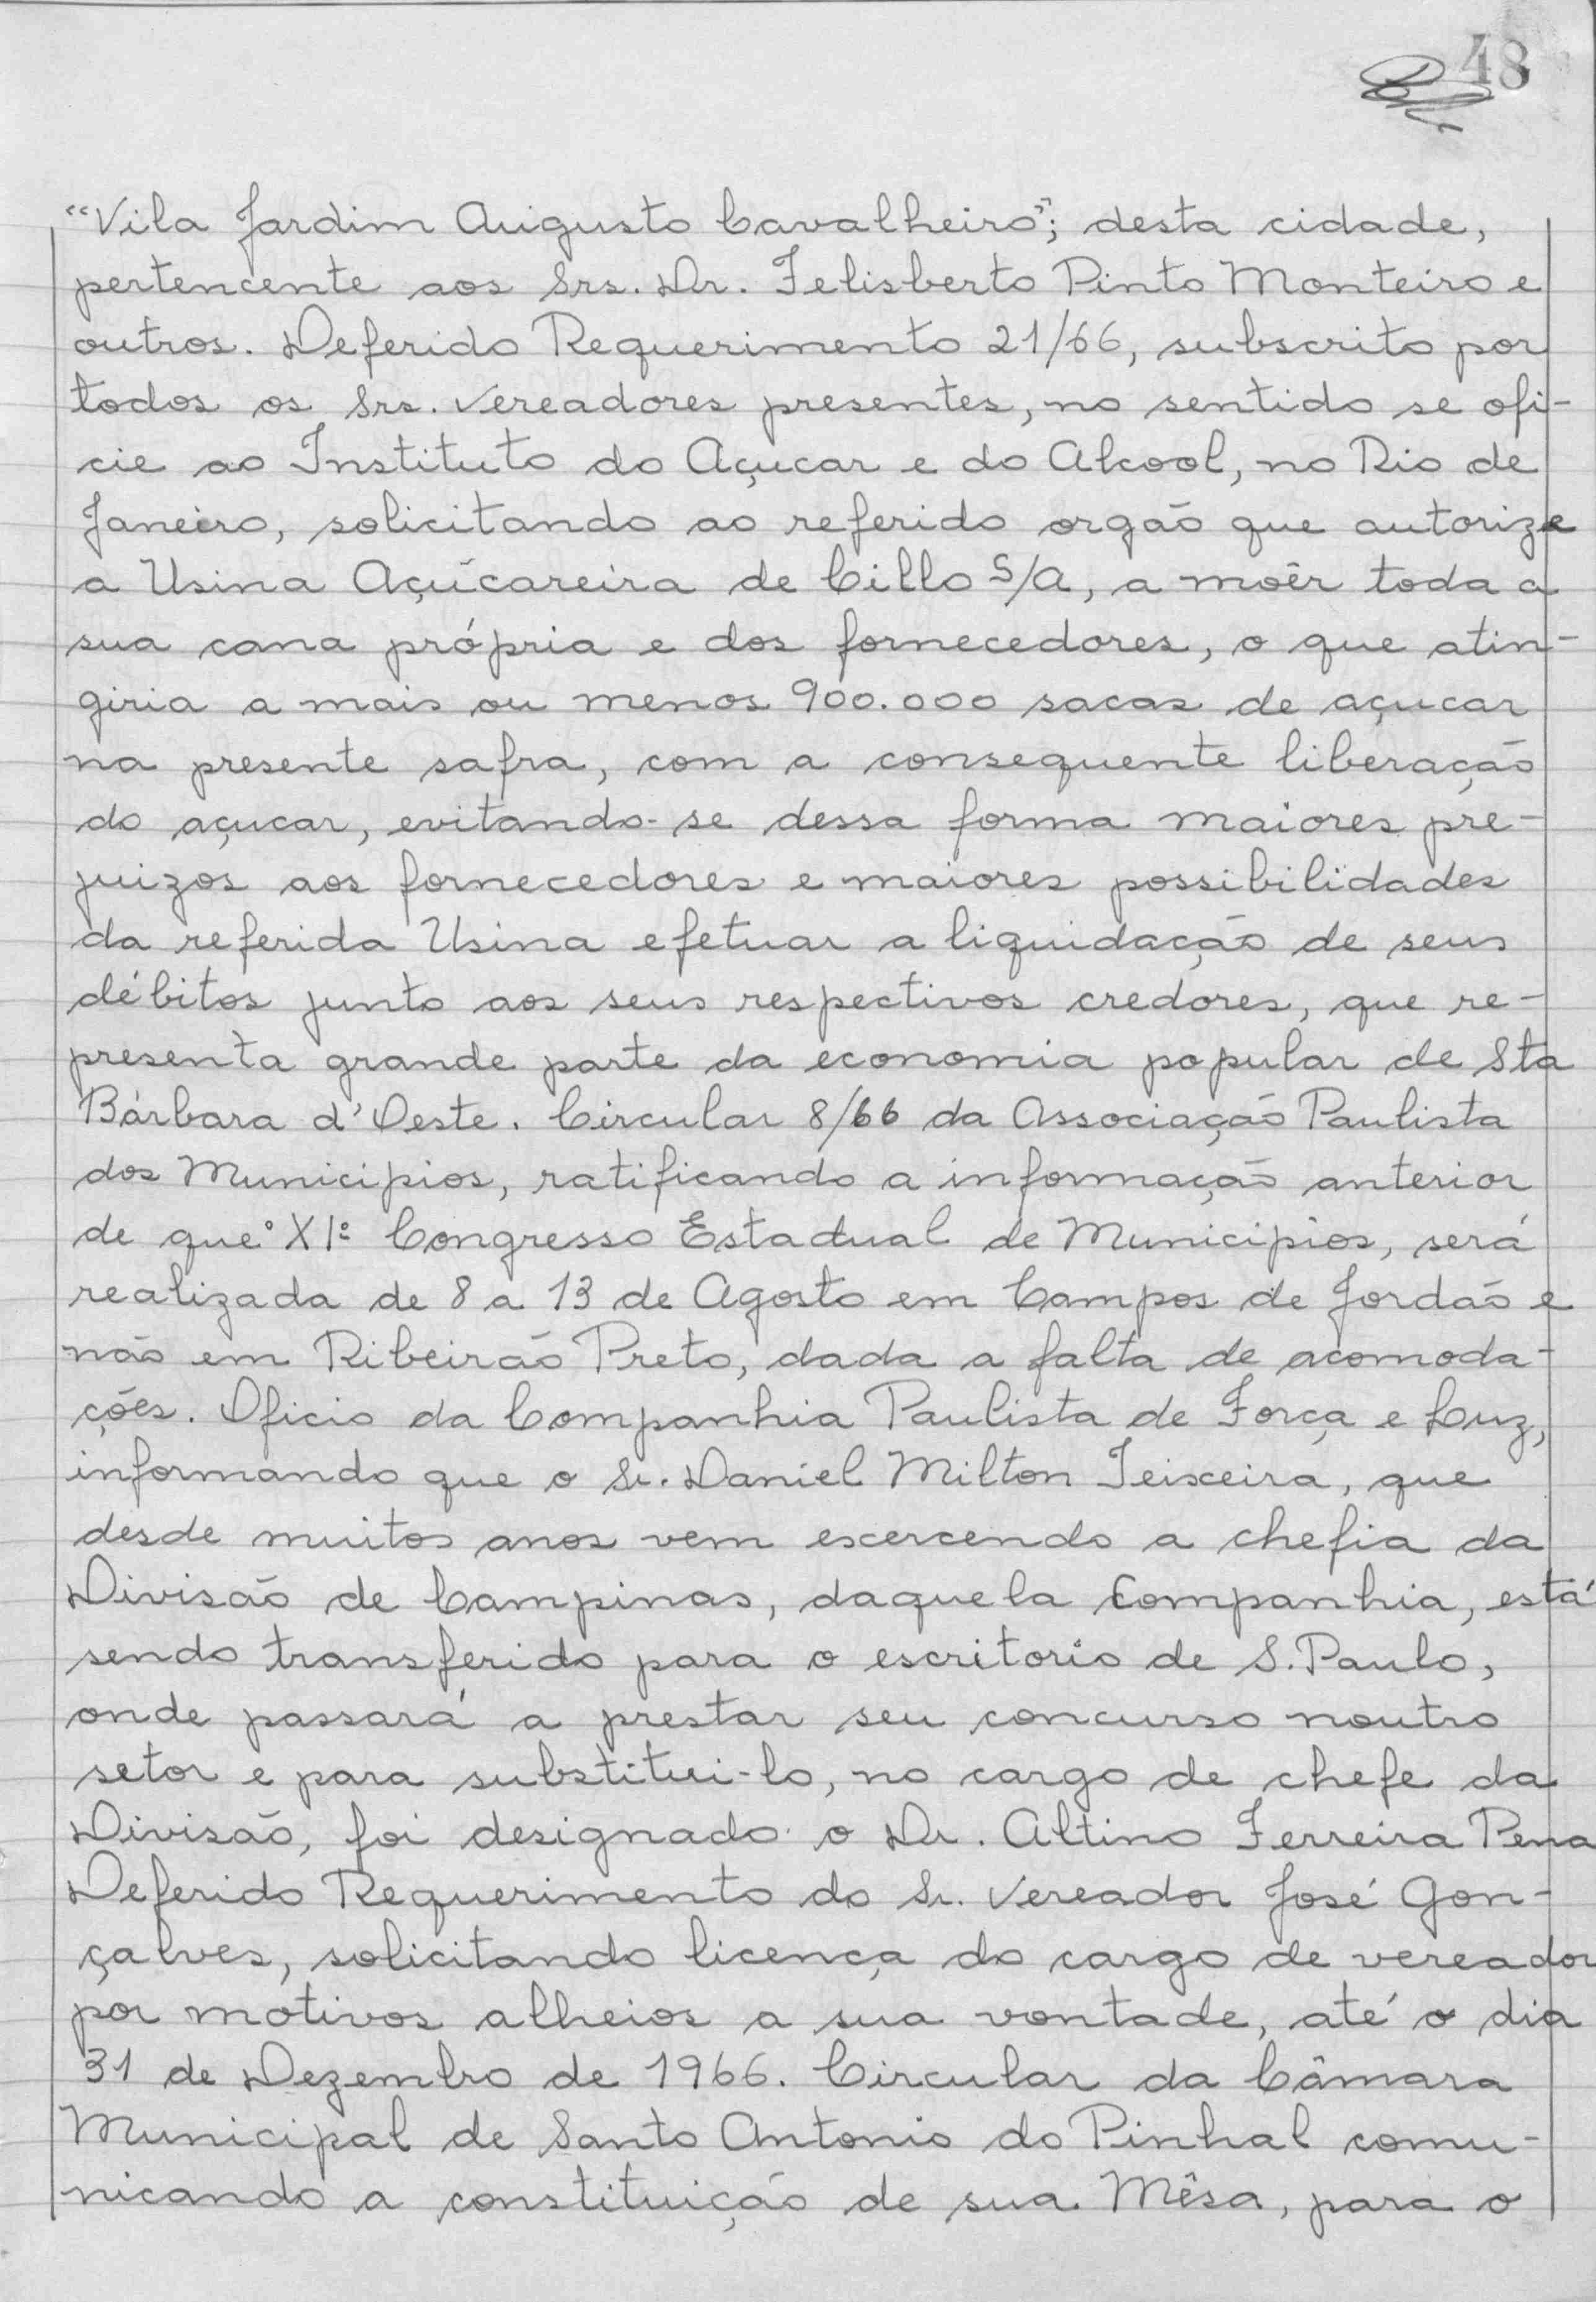 48
"Vila Jardim Augusto Cavalheiro"; desta cidade,
pertencente aos Srs. Dr. Felisberto Pinto Monteiro e
outros. Deferido Requerimento 21/66, subscrito por
todos os Srs. Vereadores presentes, no sentido se ofi-
cie ao Instituto do Açucar e do Alcool, no Rio de
Janeiro, solicitando ao referido orgão que autorize
a Usina Açúcareira de Cillo S/A, a moêr toda a
sua cana própria e dos fornecedores, o que atin-
giria a mais ou menos 900.000 sacas de açucar
na presente safra, com a consequente liberação
do açucar, evitando-se dessa forma maiores pre-
juizos aos fornecedores e maiores possibilidades
da referida Usina efetuar a liquidação de seus
débitos junto aos seus respectivos credores, que re-
presenta grande parte da economia popular de Sta
Bárbara d'Oeste. Circular 8/66 da Associação Paulista
dos Municipios, ratificando a informação anterior
de que o XIº Congresso Estadual de Municipios, será
realizada de 8 a 13 de Agosto em Campos de Jordão e
não em Ribeirão Preto, dada a falta de acomoda-
ções. Oficio da Companhia Paulista de Força e Luz,
informando que o Sr. Daniel Milton Teixeira, que
desde muitos anos vem exercendo a chefia da
Divisão de Campinas, daquela Companhia, está
sendo transferido para o escritorio de S. Paulo,
onde passará a prestar seu concurso noutro
setor e para substitui-lo, no cargo de chefe da
Divisão, foi designado o Dr. Altino Ferreira Pena
Deferido Requerimento do Sr. Vereador José Gon-
çalves, solicitando licença do cargo de vereador
por motivos alheios a sua vontade, até o dia
31 de Dezembro de 1966. Circular da Câmara
Municipal de Santo Antonio do Pinhal comu-
nicando a constituição de sua Mêsa, para o